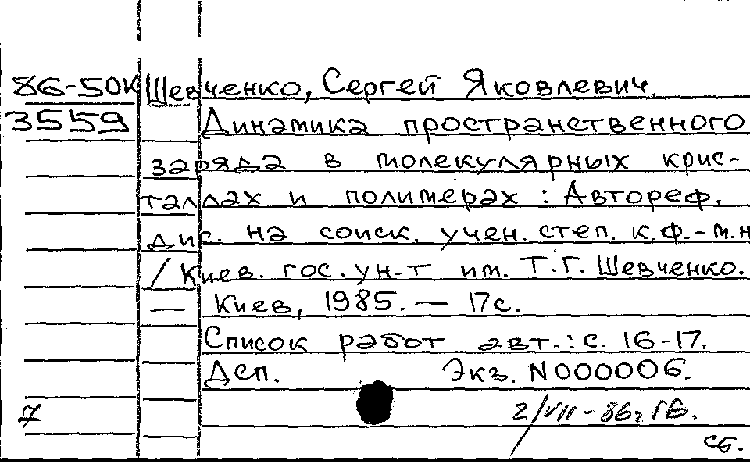 86-50к Шевченко, Сергей Яковлевич.
3559 Динамика пространственного
заряда в молекулярных крис-
таллах и полимерах : Автореф.
дис. на соиск. учен. степ. к.ф.-м.н
/ Киев. гос. ун-т им. Т.Г. Шевченко.
— Киев, 1985. — 17с.
Список работ авт.: с. 16-17.
Дсп. Экз. N000006.
7 2/VII-86г ГБ.
сб.